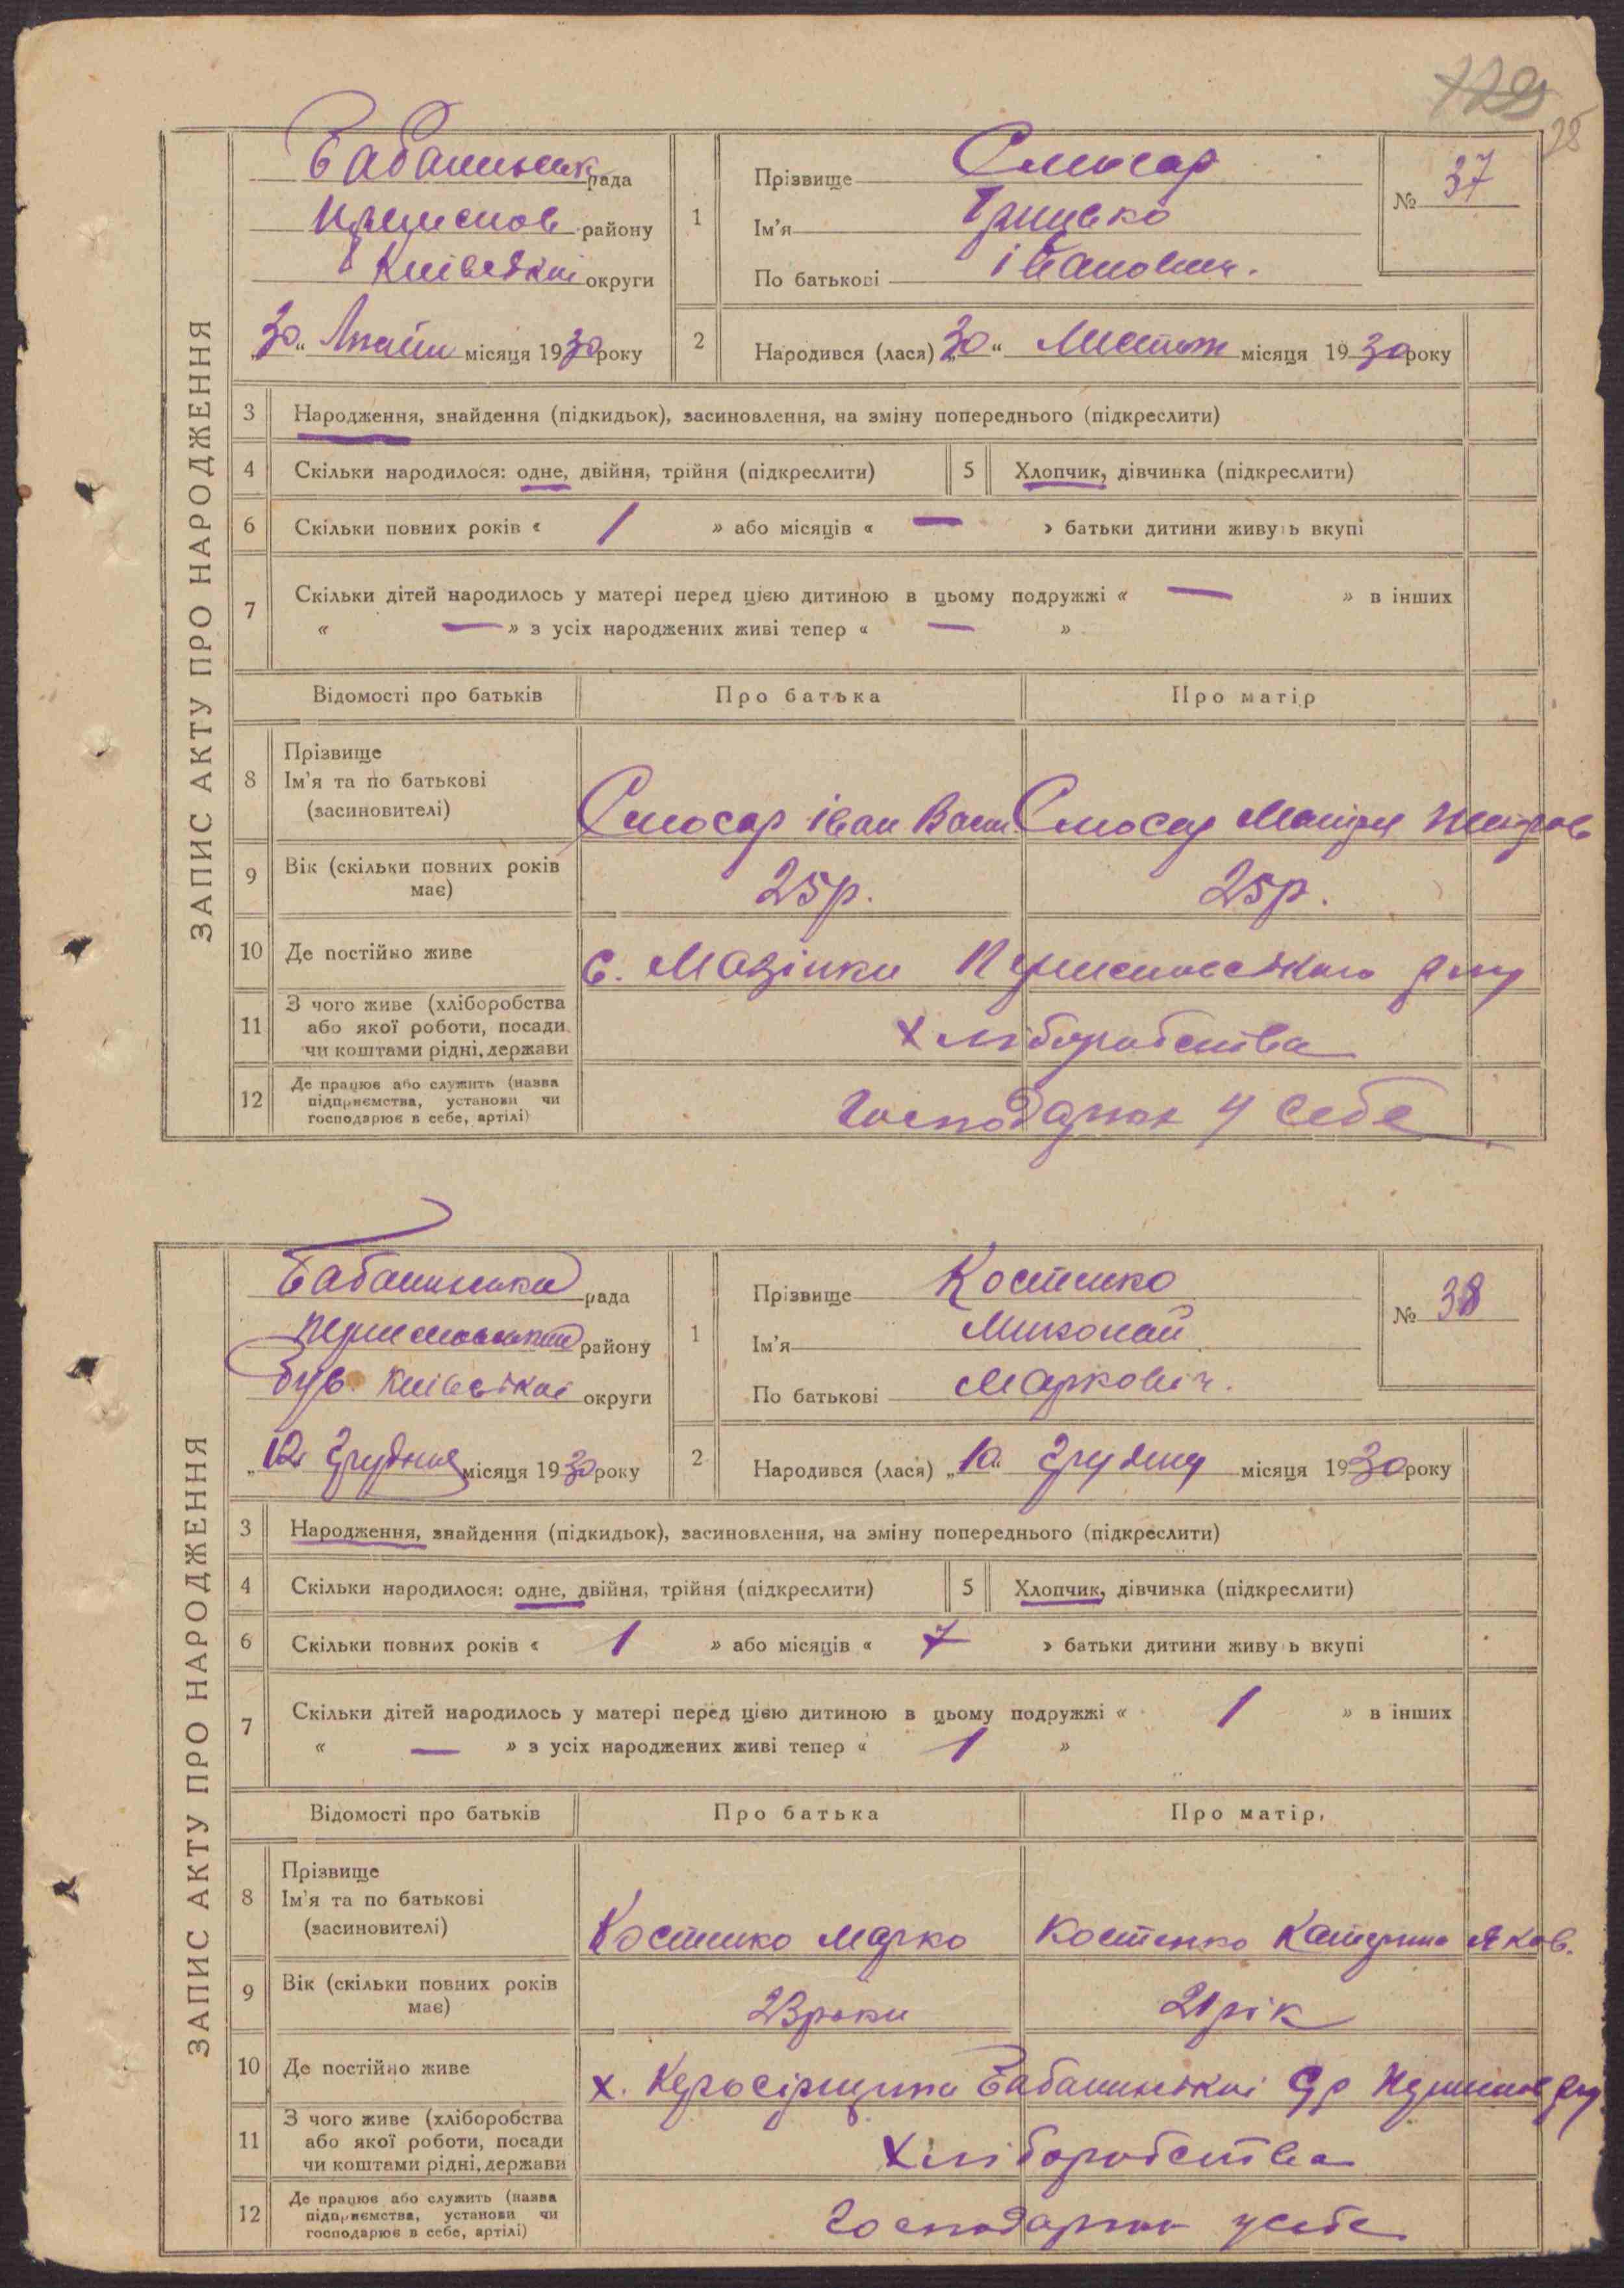 129
28
ЗАПИС АКТУ ПРО НАРОДЖЕННЯ
Бабанинськ рада
району
Київської округи
„30“ місяця 1930 року
1
Прізвище Слюсар
Ім'я Грицько
По батькові Іванович.
№ 37
2
Народився (лася) „30“ Листоп місяця 1930 року
3 Народження, знайдення (підкидьок), засиновлення, на зміну попереднього (підкреслити)
4 Скільки народилося: одне, двійня, трійня (підкреслити) 5 Хлопчик, дівчинка (підкреслити)
6 Скільки повних років « 1 » або місяців « — » батьки дитини живуть вкупі
7 Скільки дітей народилось у матері перед цією дитиною в цьому подружжі « — » в інших
« — » з усіх народжених живі тепер « — »
Відомості про батьків Про батька Про матір
8 Прізвище
Ім'я та по батькові
(засиновителі)
Слюсар Іван Васил Слюсар
9 Вік (скільки повних років має)
25р. 25р.
10 Де постійно живе
с. Мазінки Переяславського р-ну
11 З чого живе (хліборобства
або якої роботи, посади
чи коштами рідні, держави
Хліборобства
12 Де працює або служить (назва
підприємства, установи чи
господарює в себе, артілі)
Господарює у себе
ЗАПИС АКТУ ПРО НАРОДЖЕННЯ
Бабанинська рада
району
був. Київської округи
„12“ Грудня місяця 1930 року
1
Прізвище Костенко
Ім'я Миколай
По батькові Маркович.
№ 38
2
Народився (лася) „10“ Грудня місяця 1930 року
3 Народження, знайдення (підкидьок), засиновлення, на зміну попереднього (підкреслити)
4 Скільки народилося: одне, двійня, трійня (підкреслити) 5 Хлопчик, дівчинка (підкреслити)
6 Скільки повних років « 1 » або місяців « 7 » батьки дитини живуть вкупі
7 Скільки дітей народилось у матері перед цією дитиною в цьому подружжі « 1 » в інших
« — » з усіх народжених живі тепер « 1 »
Відомості про батьків Про батька Про матір
8 Прізвище
Ім'я та по батькові
(засиновителі)
Костенко Марко Костенко Катерина Яков.
9 Вік (скільки повних років має)
23 роки 21 рік
10 Де постійно живе
х. Бабанинської с/р
11 З чого живе (хліборобства
або якої роботи, посади
чи коштами рідні, держави
Хліборобства
12 Де працює або служить (назва
підприємства, установи чи
господарює в себе, артілі)
Господарює у себе